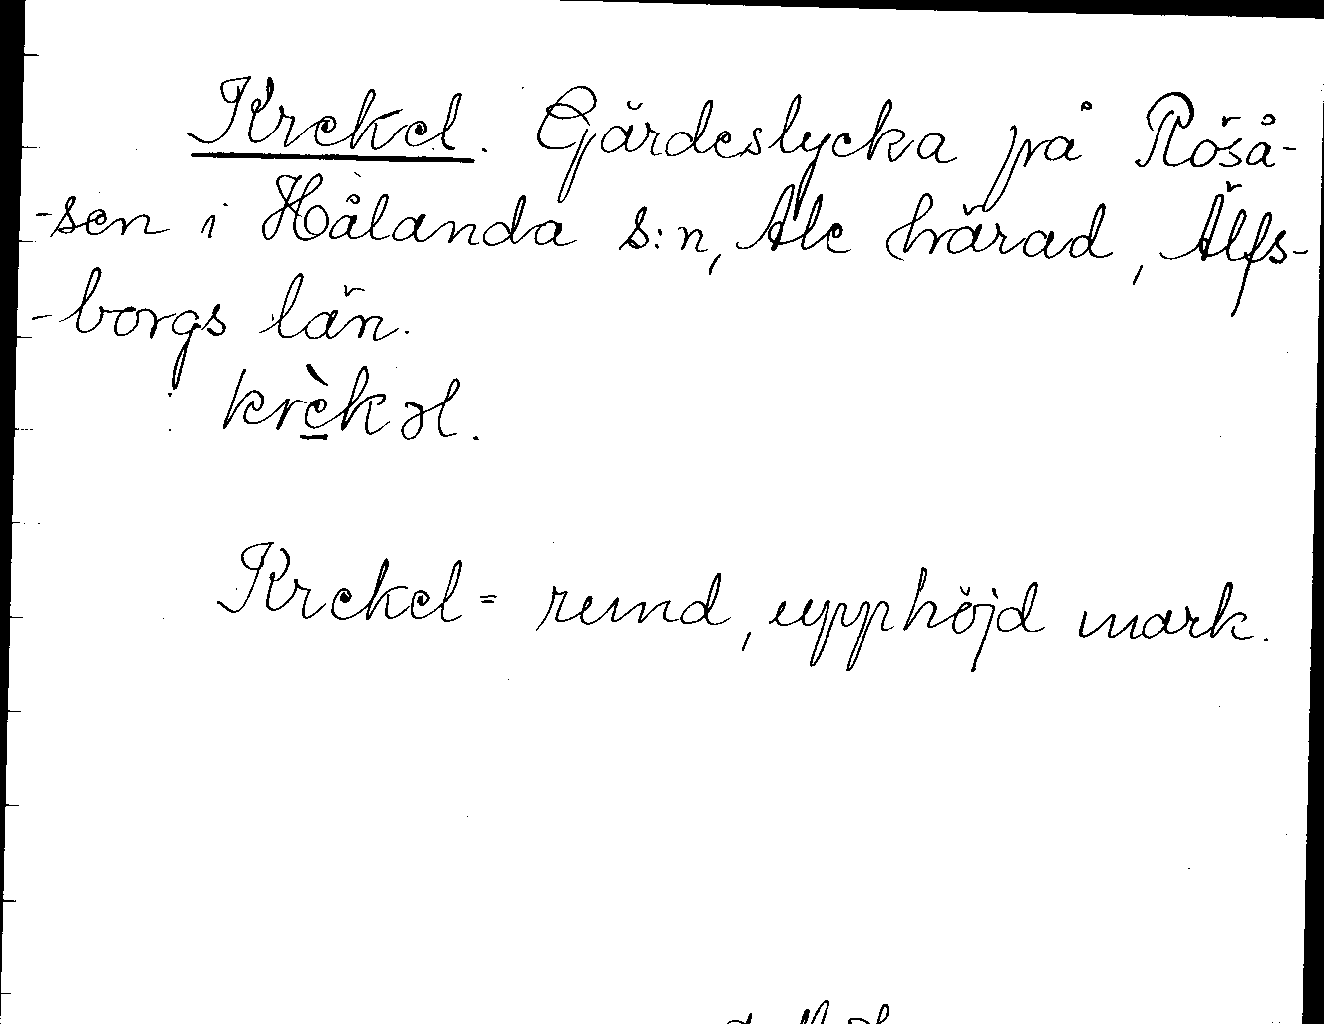 Krekel. Gärdeslycka på Röså-
-sen i Hålanda s:n, Ale härad, Älfs-
-borgs län.
krè̱kəl.
Krekel = rund, upphöjd mark.